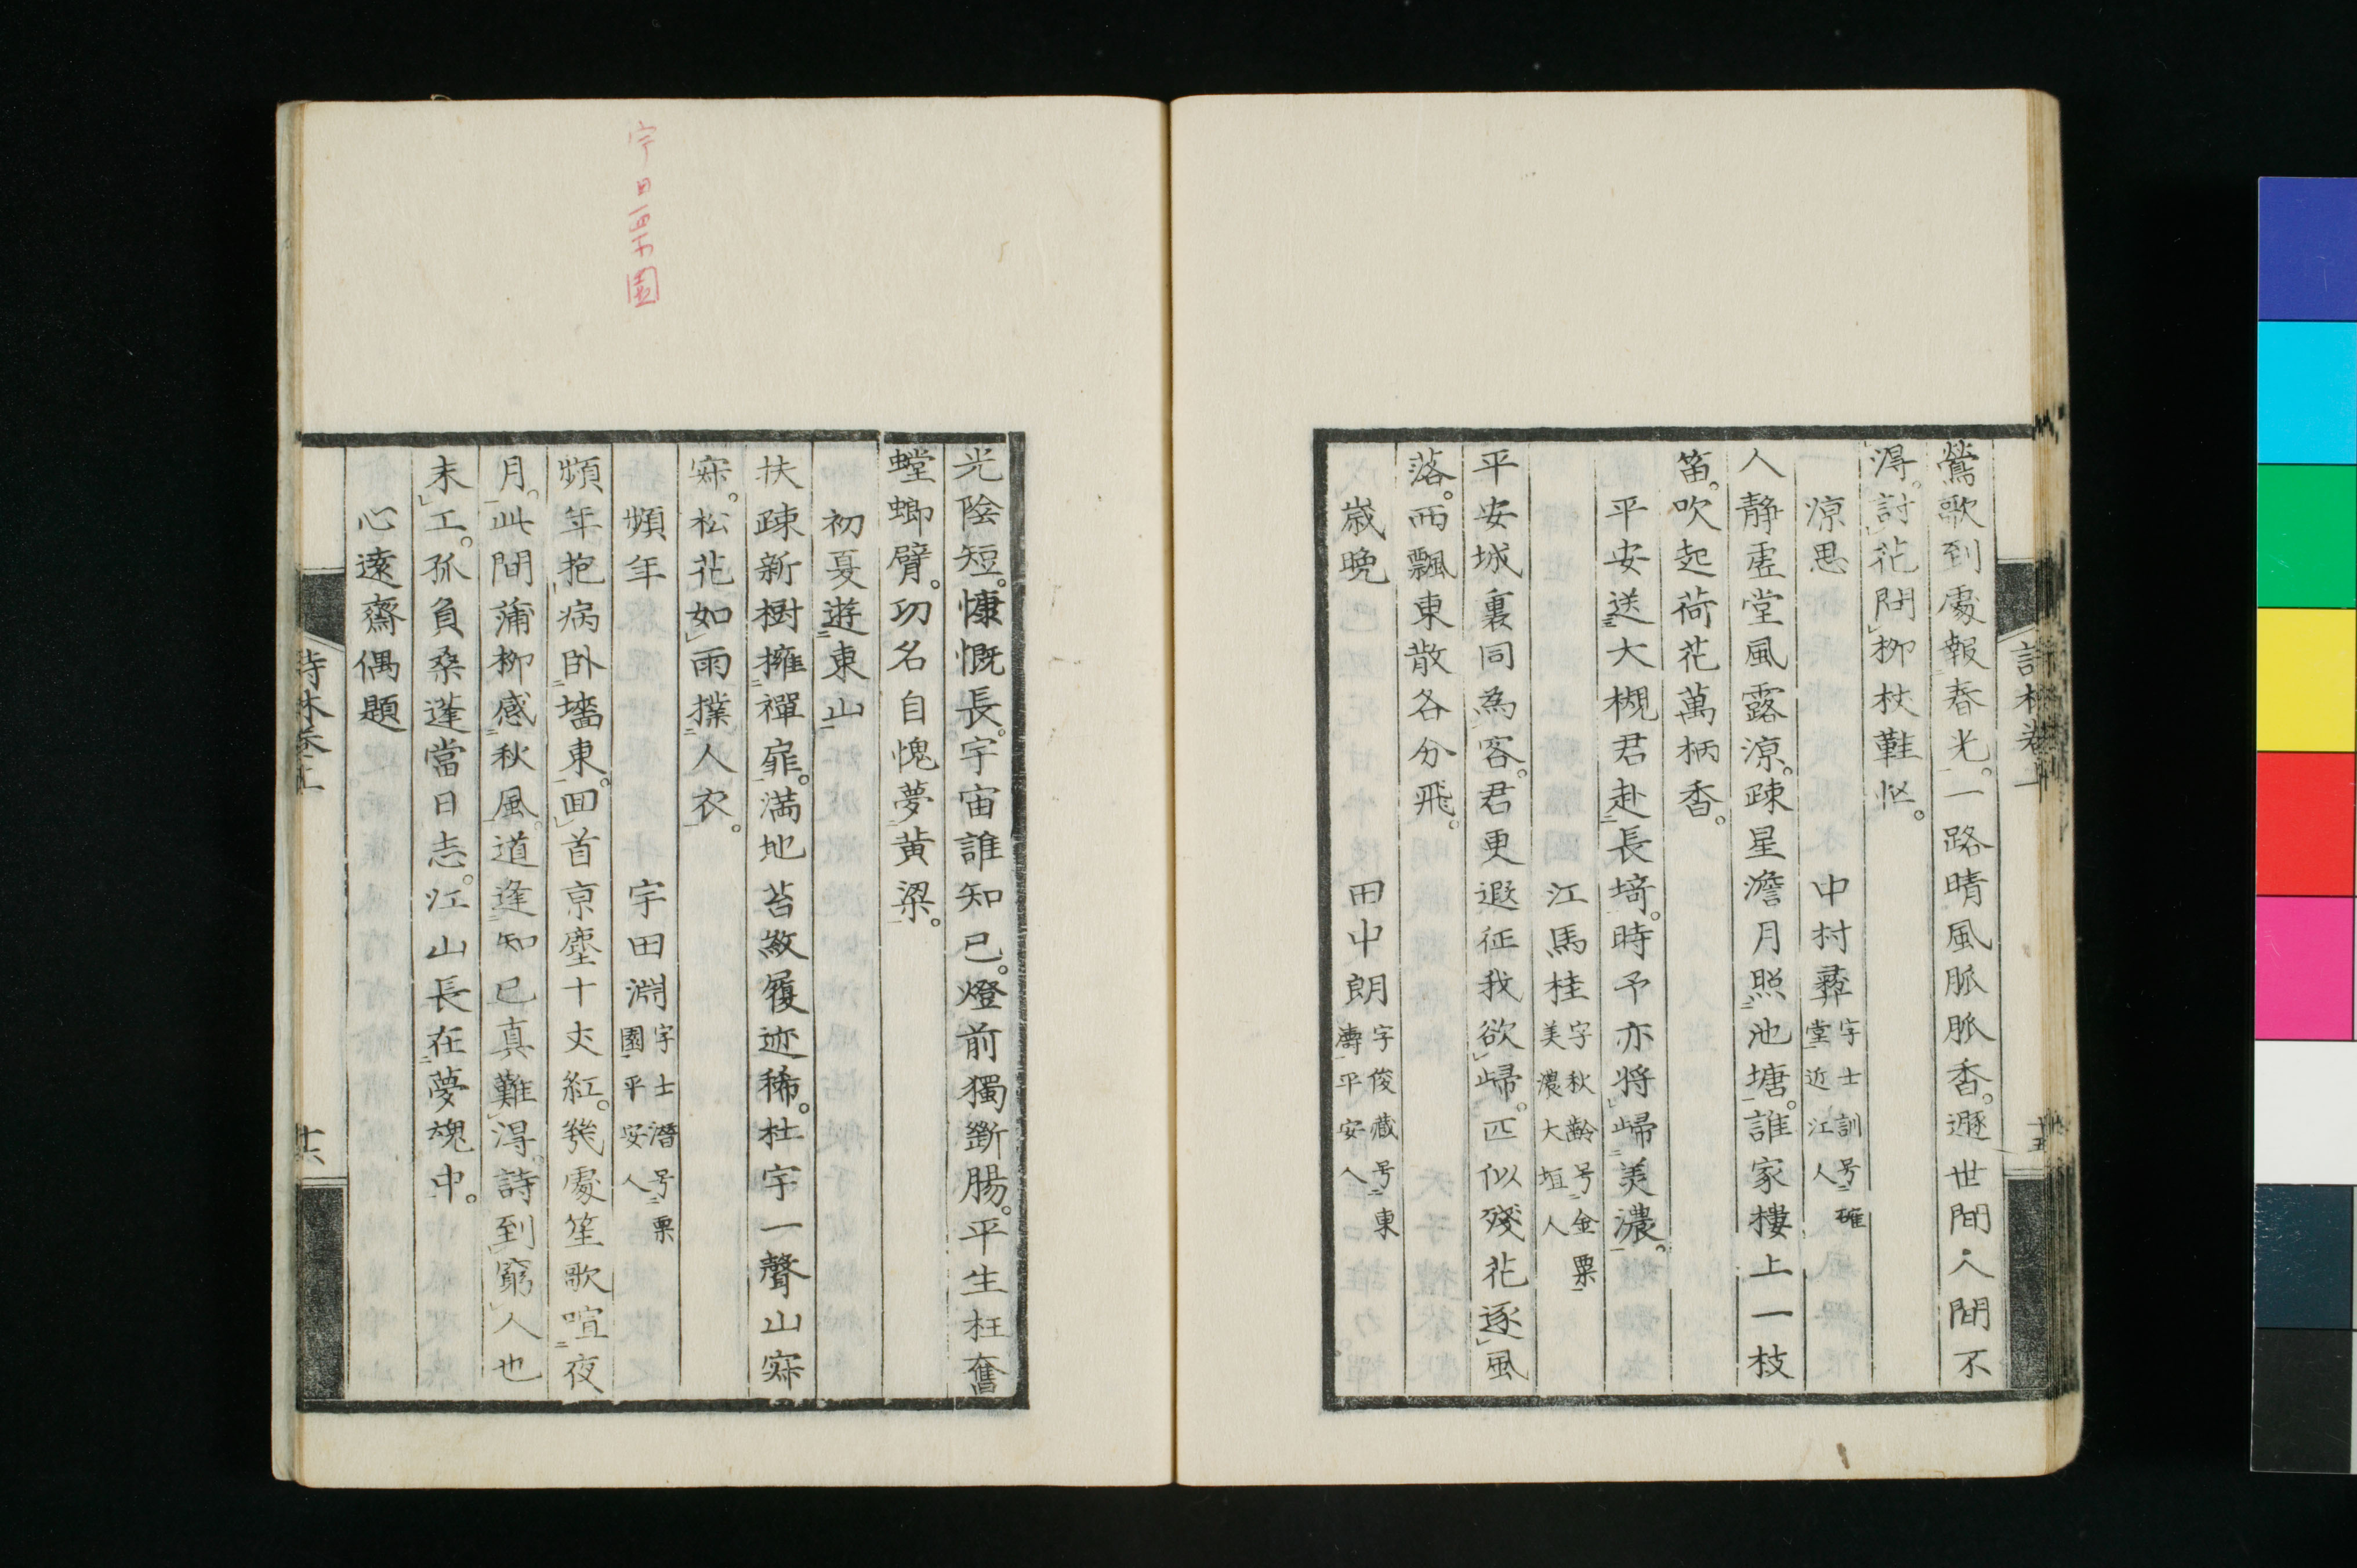 鶯歌到處報春光。一路晴風脈脈香。遯世間人間不
得。討花問柳杖鞋忙。
涼思　中村彛字士訓号確堂近江人
人靜虛堂風露涼。疎星澹月照池塘。誰家樓上一枝
笛。吹起荷花萬柄香。
平安送大槻君赴長埼。時予亦將歸美濃。
江馬桂字秋齡号金粟美濃大垣人
平安城裏同為客。君更遐征我欲歸。匹似殘花逐風
落。西飄東散各分飛。
歲晩　田中朗字俊藏号東濤平安人
光陰短。慷慨長。宇宙誰知己。燈前獨斷腸。平生枉奮
螳螂臂。功名自愧夢黃粱。
初夏遊東山
扶疎新樹擁禪扉。滿地苔紋履迹稀。杜宇一聲山寂
寂。松花如雨撲人衣。
頻年　宇田淵字士潛号栗園平安人
頻年抱病臥墻東。回首京塵十丈紅。幾處笙歌喧夜
月。此間蒲柳感秋風。道逢知己真難得。詩到窮人也
未工。孤負桑蓬當日志。江山長在夢魂中。
心遠齋偶題
詩林卷上
十六